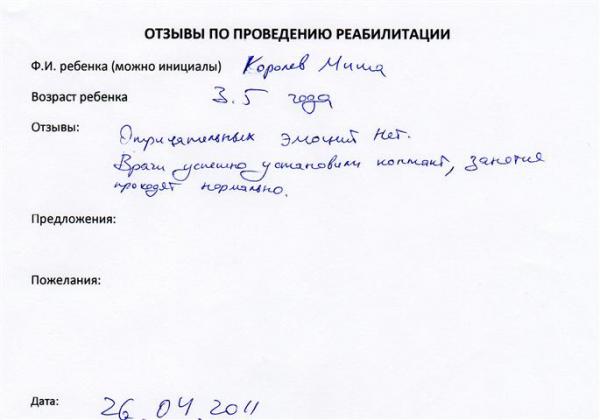 ОТЗЫВЫ ПО ПРОВЕДЕНИЮ РЕАБИЛИТАЦИИ
Ф.И. ребенка (можно инициалы) Королев Миша
Возраст ребенка 3.5 года
Отзывы: Отрицательных эмоций нет.
Врачи успешно установили контакт, занятия
проходят нормально.
Предложения:
Пожелания:
Дата: 26.04.2011